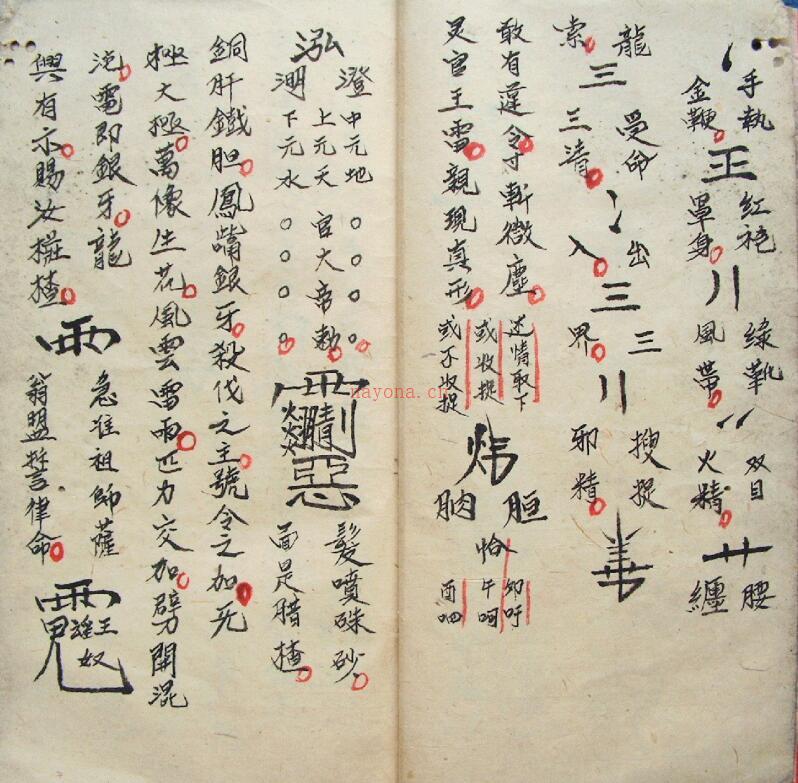 手執
金鞭
王
紅袍
罩身
川
綠靴
風帶
双目
火精
廾
腰
纏
龍
索
三
受命
三清
出
入
三
三
界
川
搜捉
邪精
敢有違令寸斬微塵
灵官王雷親現真形
述情取下
或收捉
或不收捉
炜
胆
胸
恰
卯吁
午呵
酉呬
泓
澄
澗
中元地
上元天
下元水
官大帝勅
惡
髮噴硃砂
面是腊楂
銅肝鐵胆鳳嘴銀牙殺伐之主號令之加死
極大極萬像生花風雲雷雨匹力交加劈開混
沌電即銀牙龍
與有示賜汝樁楂
雨
急准祖師薩
翁盟誓律命
王
奴
nayona.cn